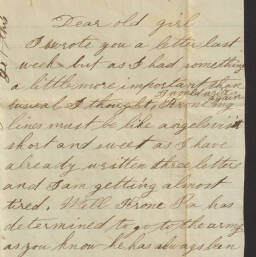 Dear old girl
I wrote you a letter last
week but as I had something
a little more important than
usual I thought I would write again
lines must be like angels visit
short and sweet as I have
already written three letters
and I am getting almost
tired. Well Pa has
determined to go to the army
as you know he has always been